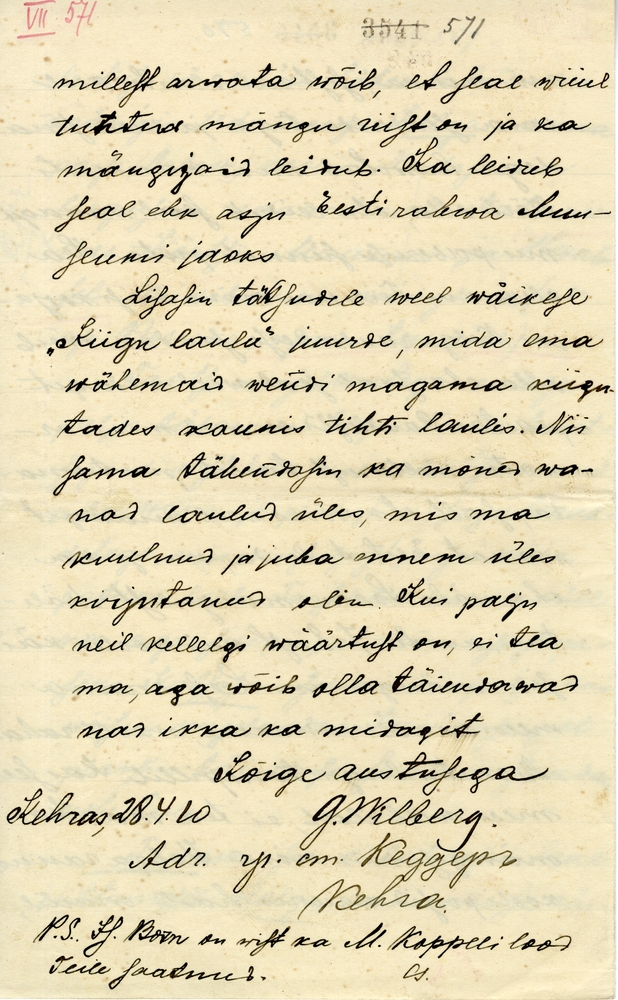 VII 571
3541 571
millest arwata wõib, et seal wiiul
tuttud mängu riist on ja ka
mängijaid leidub. Ka leidub
seal ehk asju Eesti rahwa Muu-
seumi jaoks
Lisasin tähtsudele weel wäikese
„Kiigu laulu” juurde, mida ema
wähemaid wendi magama kiigu-
tades kaunis tihti laulis. Nii
sama tähendasin ka mõned wa-
nad laulud üles, mis ma
kuulnud ja juba ennem üles
kirjutanud olin. Kui palju
neil kellelgi wäärtust on, ei tea
ma, aga wõib olla täiendawad
nad ikka ka midagit
Kõige austusega
Kehras, 28.4.10 G. Wilberg.
Adr. ст. Кеддеръ
Kehra
P.S. on wist ka M. Koppeli lood
Teile saatnud.